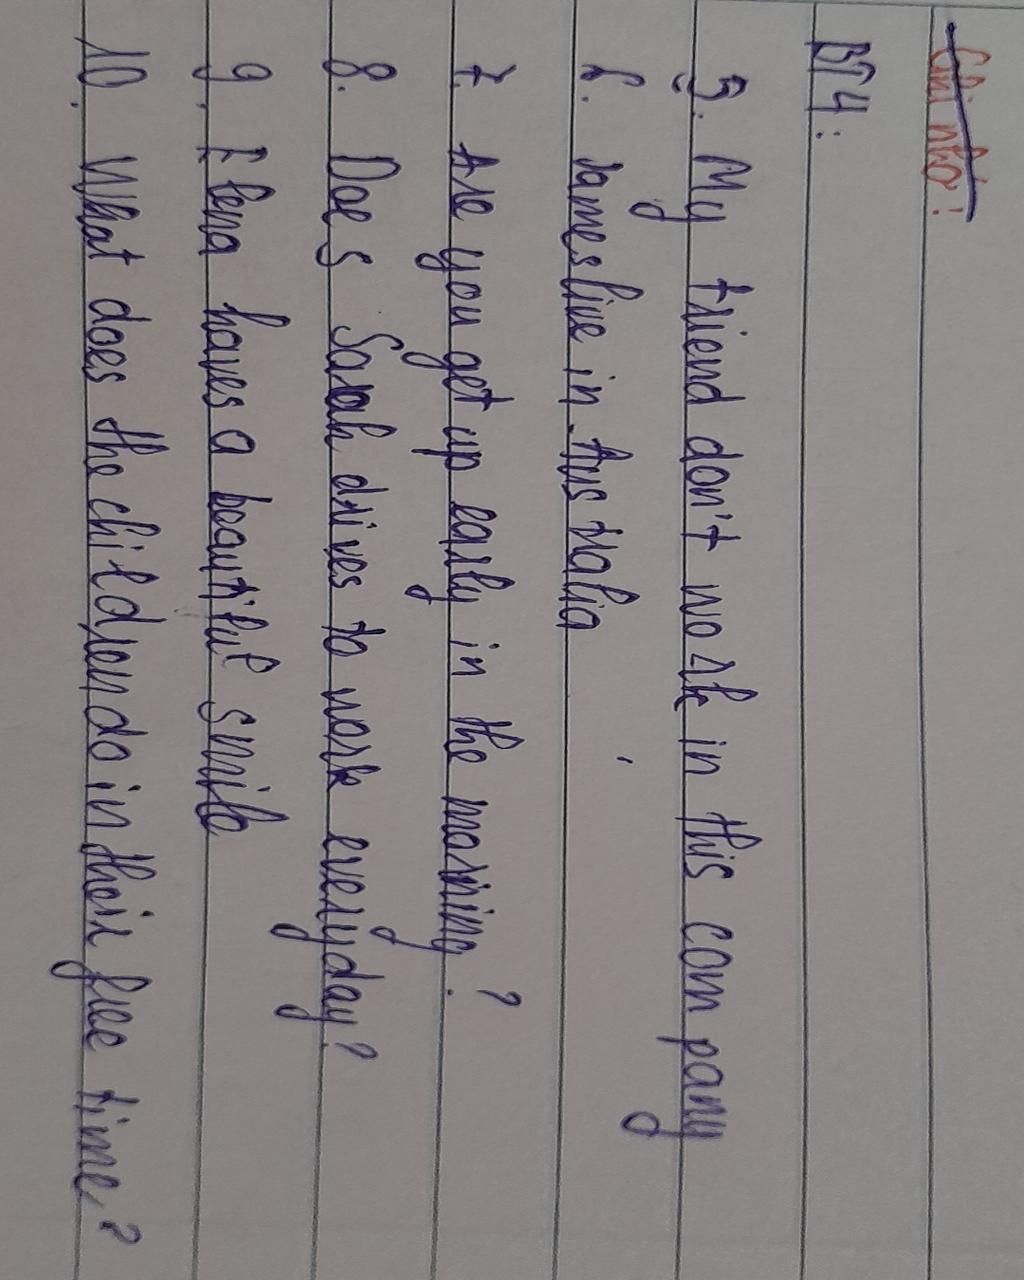 Ghi nhớ:
BT4:
5. My friend don't work in this company
6. James live in Australia
7. Are you get up early in the morning?
8. Does Sarah drives to work everyday?
9. Elena haves a beautiful smile
10. What does the children do in their free time?